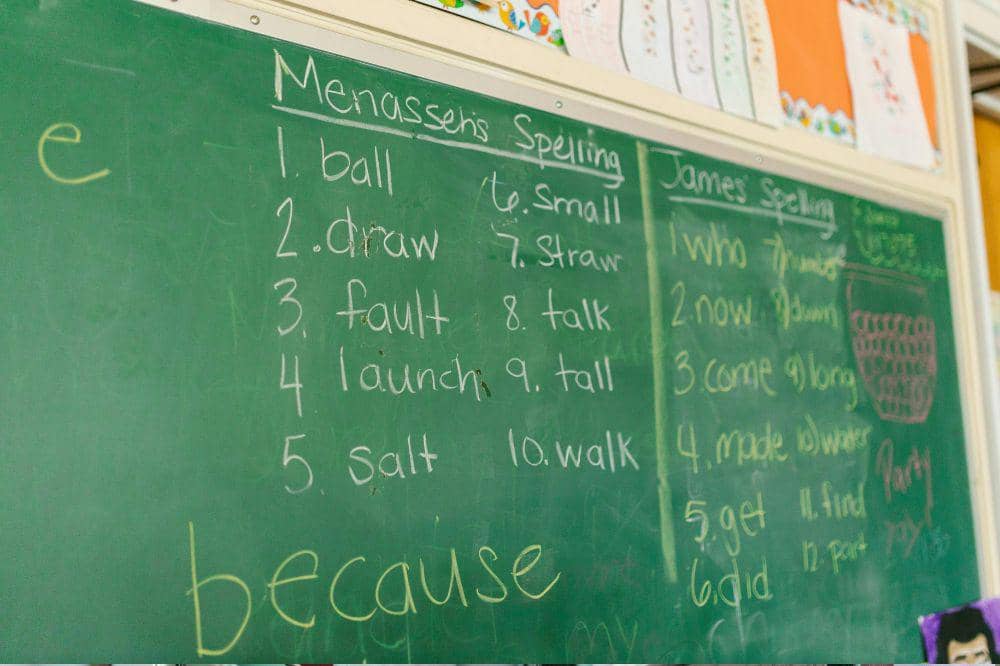 e
Menasseh's Spelling
1. ball
2. draw
3. fault
4 launch
5. salt
6. Small
7. Straw
8. talk
9. tall
10. walk
because
James' Spelling
1 who
2. now
3. come
4. made
5. get
6. did
7) number
8) down
9) long
10) water
11. find
12. part
Party
my